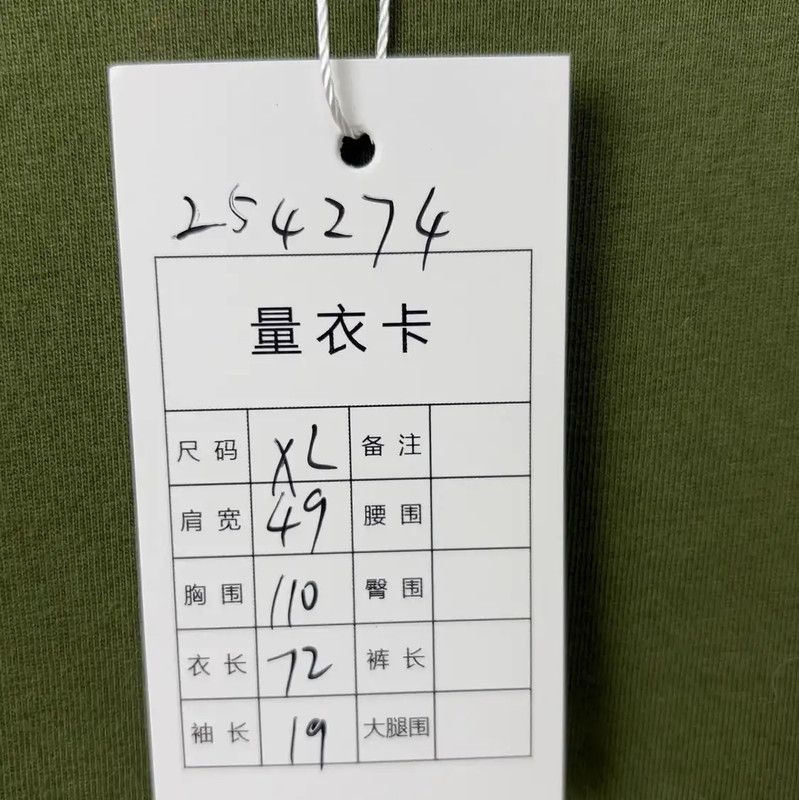 254274
量衣卡
尺码 XL 备注
肩宽 49 腰围
胸围 110 臀围
衣长 72 裤长
袖长 19 大腿围